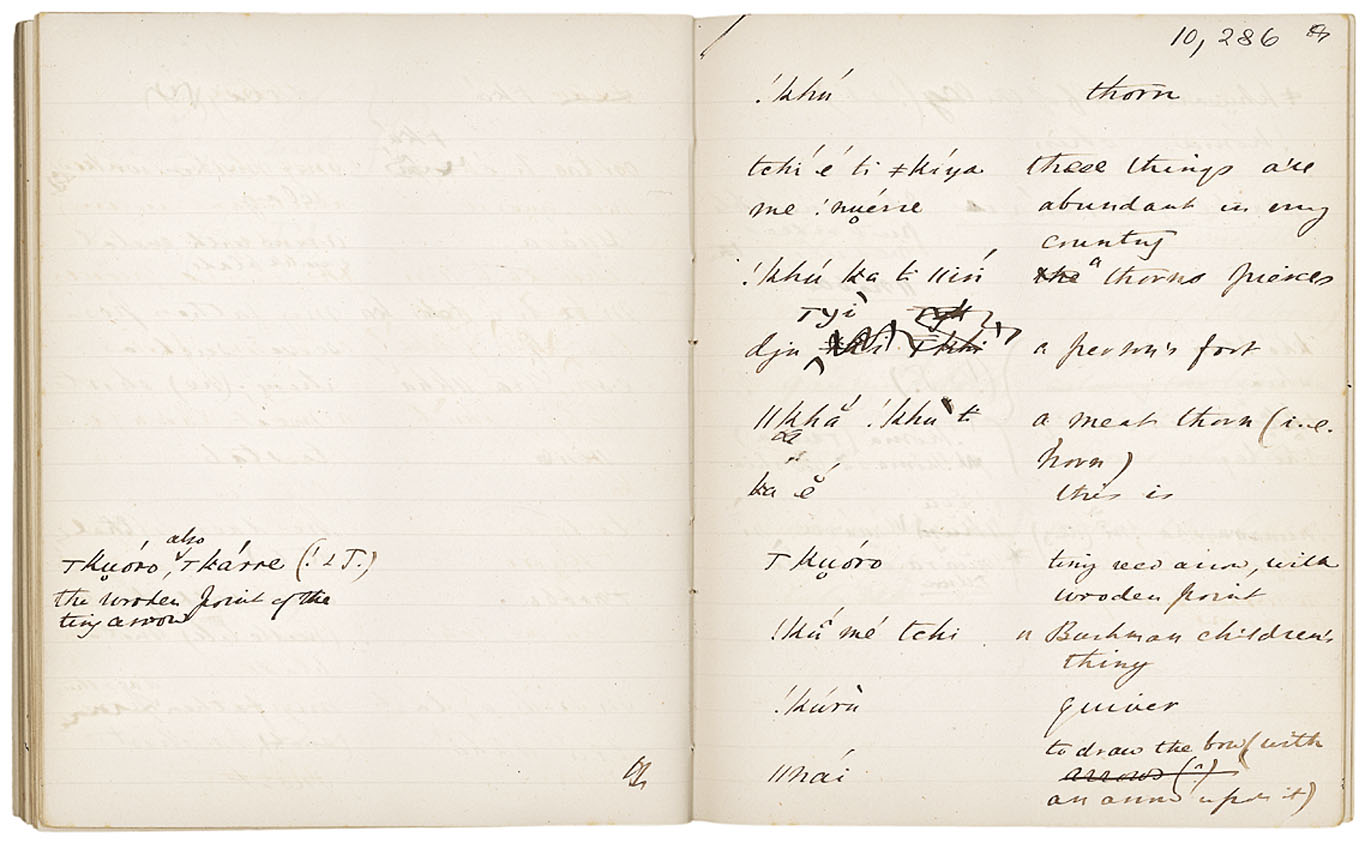 also
ꞱKu̥óro, Ʇkárre (! & T.)
the wooden point of the
tiny arrow
10,286
!khú thorn
tchí é ti ǂkíya these things are
me !nu̥érre abundant in my
country
!khú ka ti ǁúi ~~the~~ a thorns pierces
Ʇyí
dju a person's foot
ǁkhā̆ !khú ti a meat thorn (i.e.
horn)
ka ĕ́ this is
Ʇku̥óro tiny reed arrow, with
wooden point
!kŭ mé tchi a Bushman children's
thing
!kúrù quiver
to draw the bow (with
ǁnái ~~arrows (?)~~
an arrow upon it)